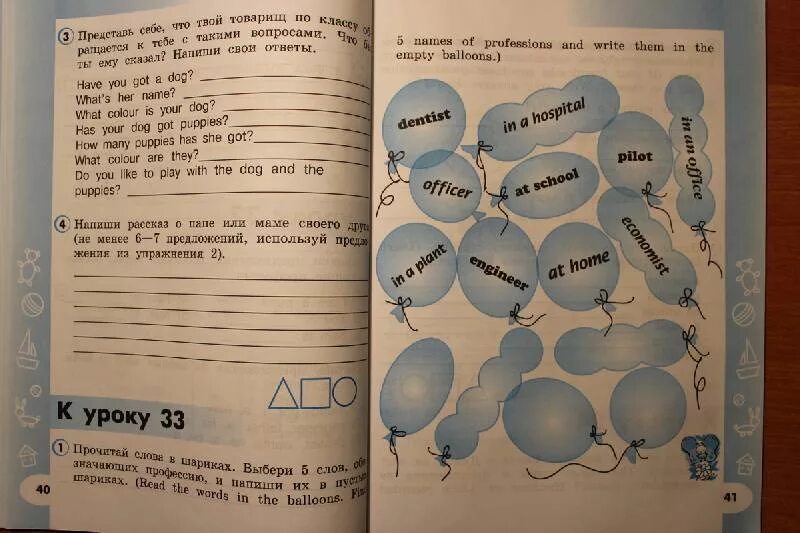 3 Представь себе, что твой товарищ по классу
ращается к тебе с такими вопросами. Что
ты ему сказал? Напиши свои ответы.
Have you got a dog?
What's her name?
What colour is your dog?
Has your dog got puppies?
How many puppies has she got?
What colour are they?
Do you like to play with the dog and the
puppies?
4 Напиши рассказ о папе или маме своего
(не менее 6—7 предложений, используй
жения из упражнения 2).
К уроку 33
1 Прочитай слова в шариках. Выбери 5 слов,
значающих профессию, и напиши их в
шариках. (Read the words in the balloons.
40
5 names of professions and write them in the
empty balloons.)
dentist
in a hospital
in an office
pilot
officer
at school
economist
in a plant
engineer
at home
41